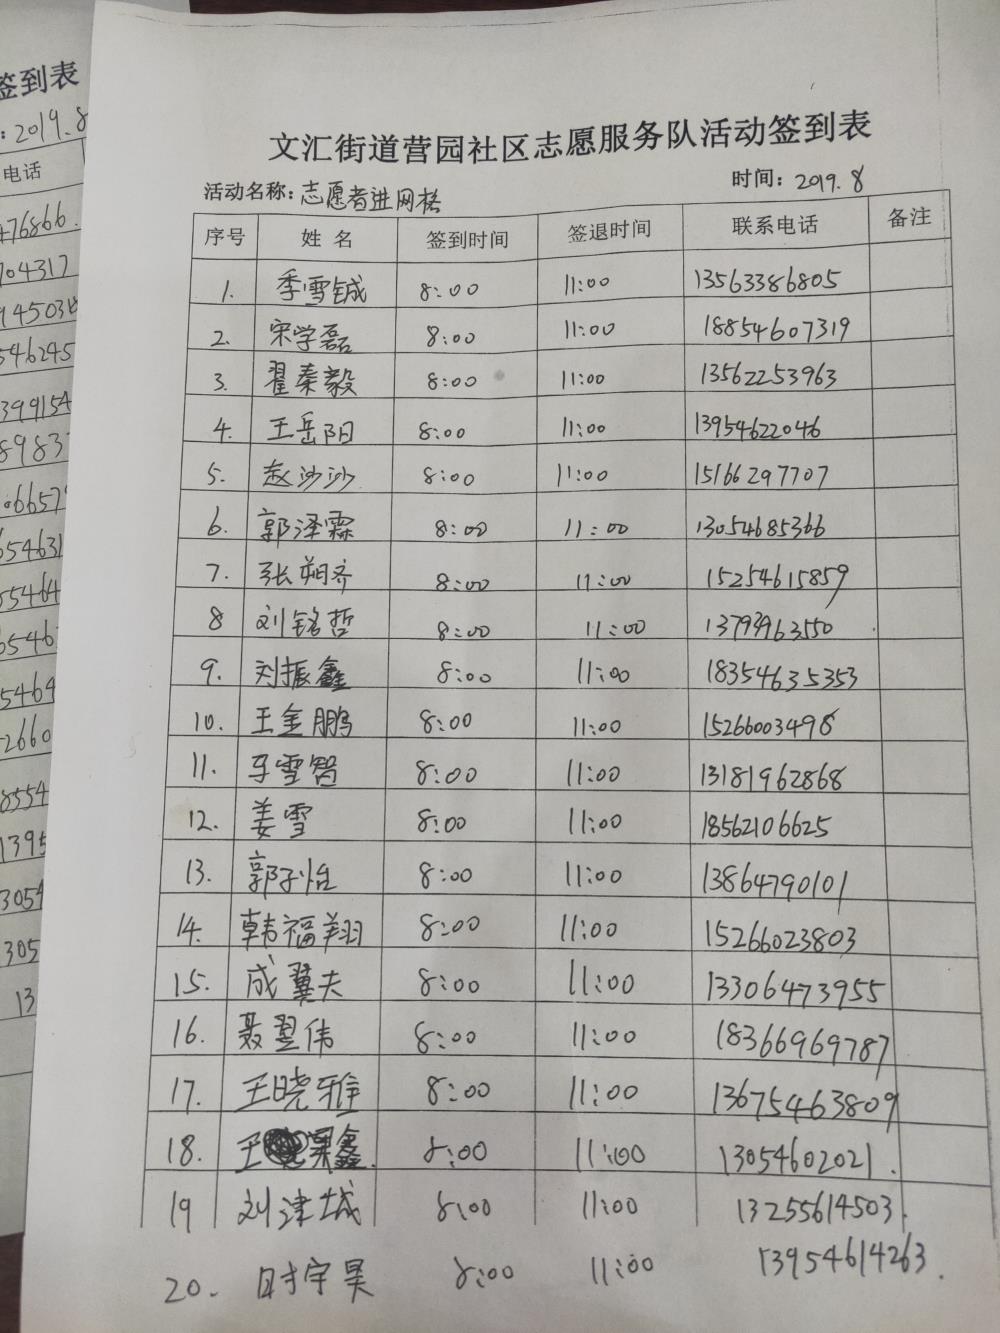 签到表
: 2019.8
电话
476866.
704317
945038
546245
399154
8983
06657
654631
55464
6546
5464
2660
8554
1395
3054
305
13
文汇街道营园社区志愿服务队活动签到表
活动名称: 志愿者进网格 时间: 2019.8
序号 姓名 签到时间 签退时间 联系电话 备注
1. 季雪铖 8:00 11:00 13563386805
2. 宋学磊 8:00 11:00 18854607319
3. 翟秦毅 8:00 11:00 13562253963
4. 王岳阳 8:00 11:00 13954622046
5. 赵沙沙 8:00 11:00 15166297707
6. 郭泽霖 8:00 11:00 13054685366
7. 张朔齐 8:00 11:00 15254615859
8 刘铭哲 8:00 11:00 13793963550
9. 刘振鑫 8:00 11:00 18354635353
10. 王金鹏 8:00 11:00 15266003498
11. 马雪智 8:00 11:00 13181962868
12. 姜雪 8:00 11:00 18562106625
13. 郭子怡 8:00 11:00 13864790101
14. 韩福翔 8:00 11:00 15266023803
15. 成翼夫 8:00 11:00 13306473955
16. 聂翌伟 8:00 11:00 18366969787
17. 王晓雅 8:00 11:00 13675463809
18. 王淏鑫. 8:00 11:00 13054602021.
19 刘津城 8:00 11:00 13255614503.
20. 时宇昊 8:00 11:00 13954614263.